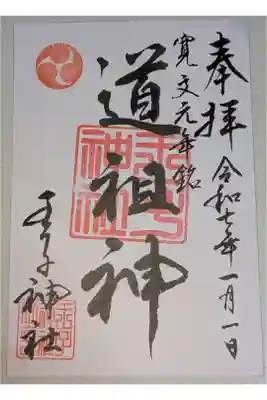 奉拝
令和七年一月一日
寛文元年銘
道祖神
王子神社